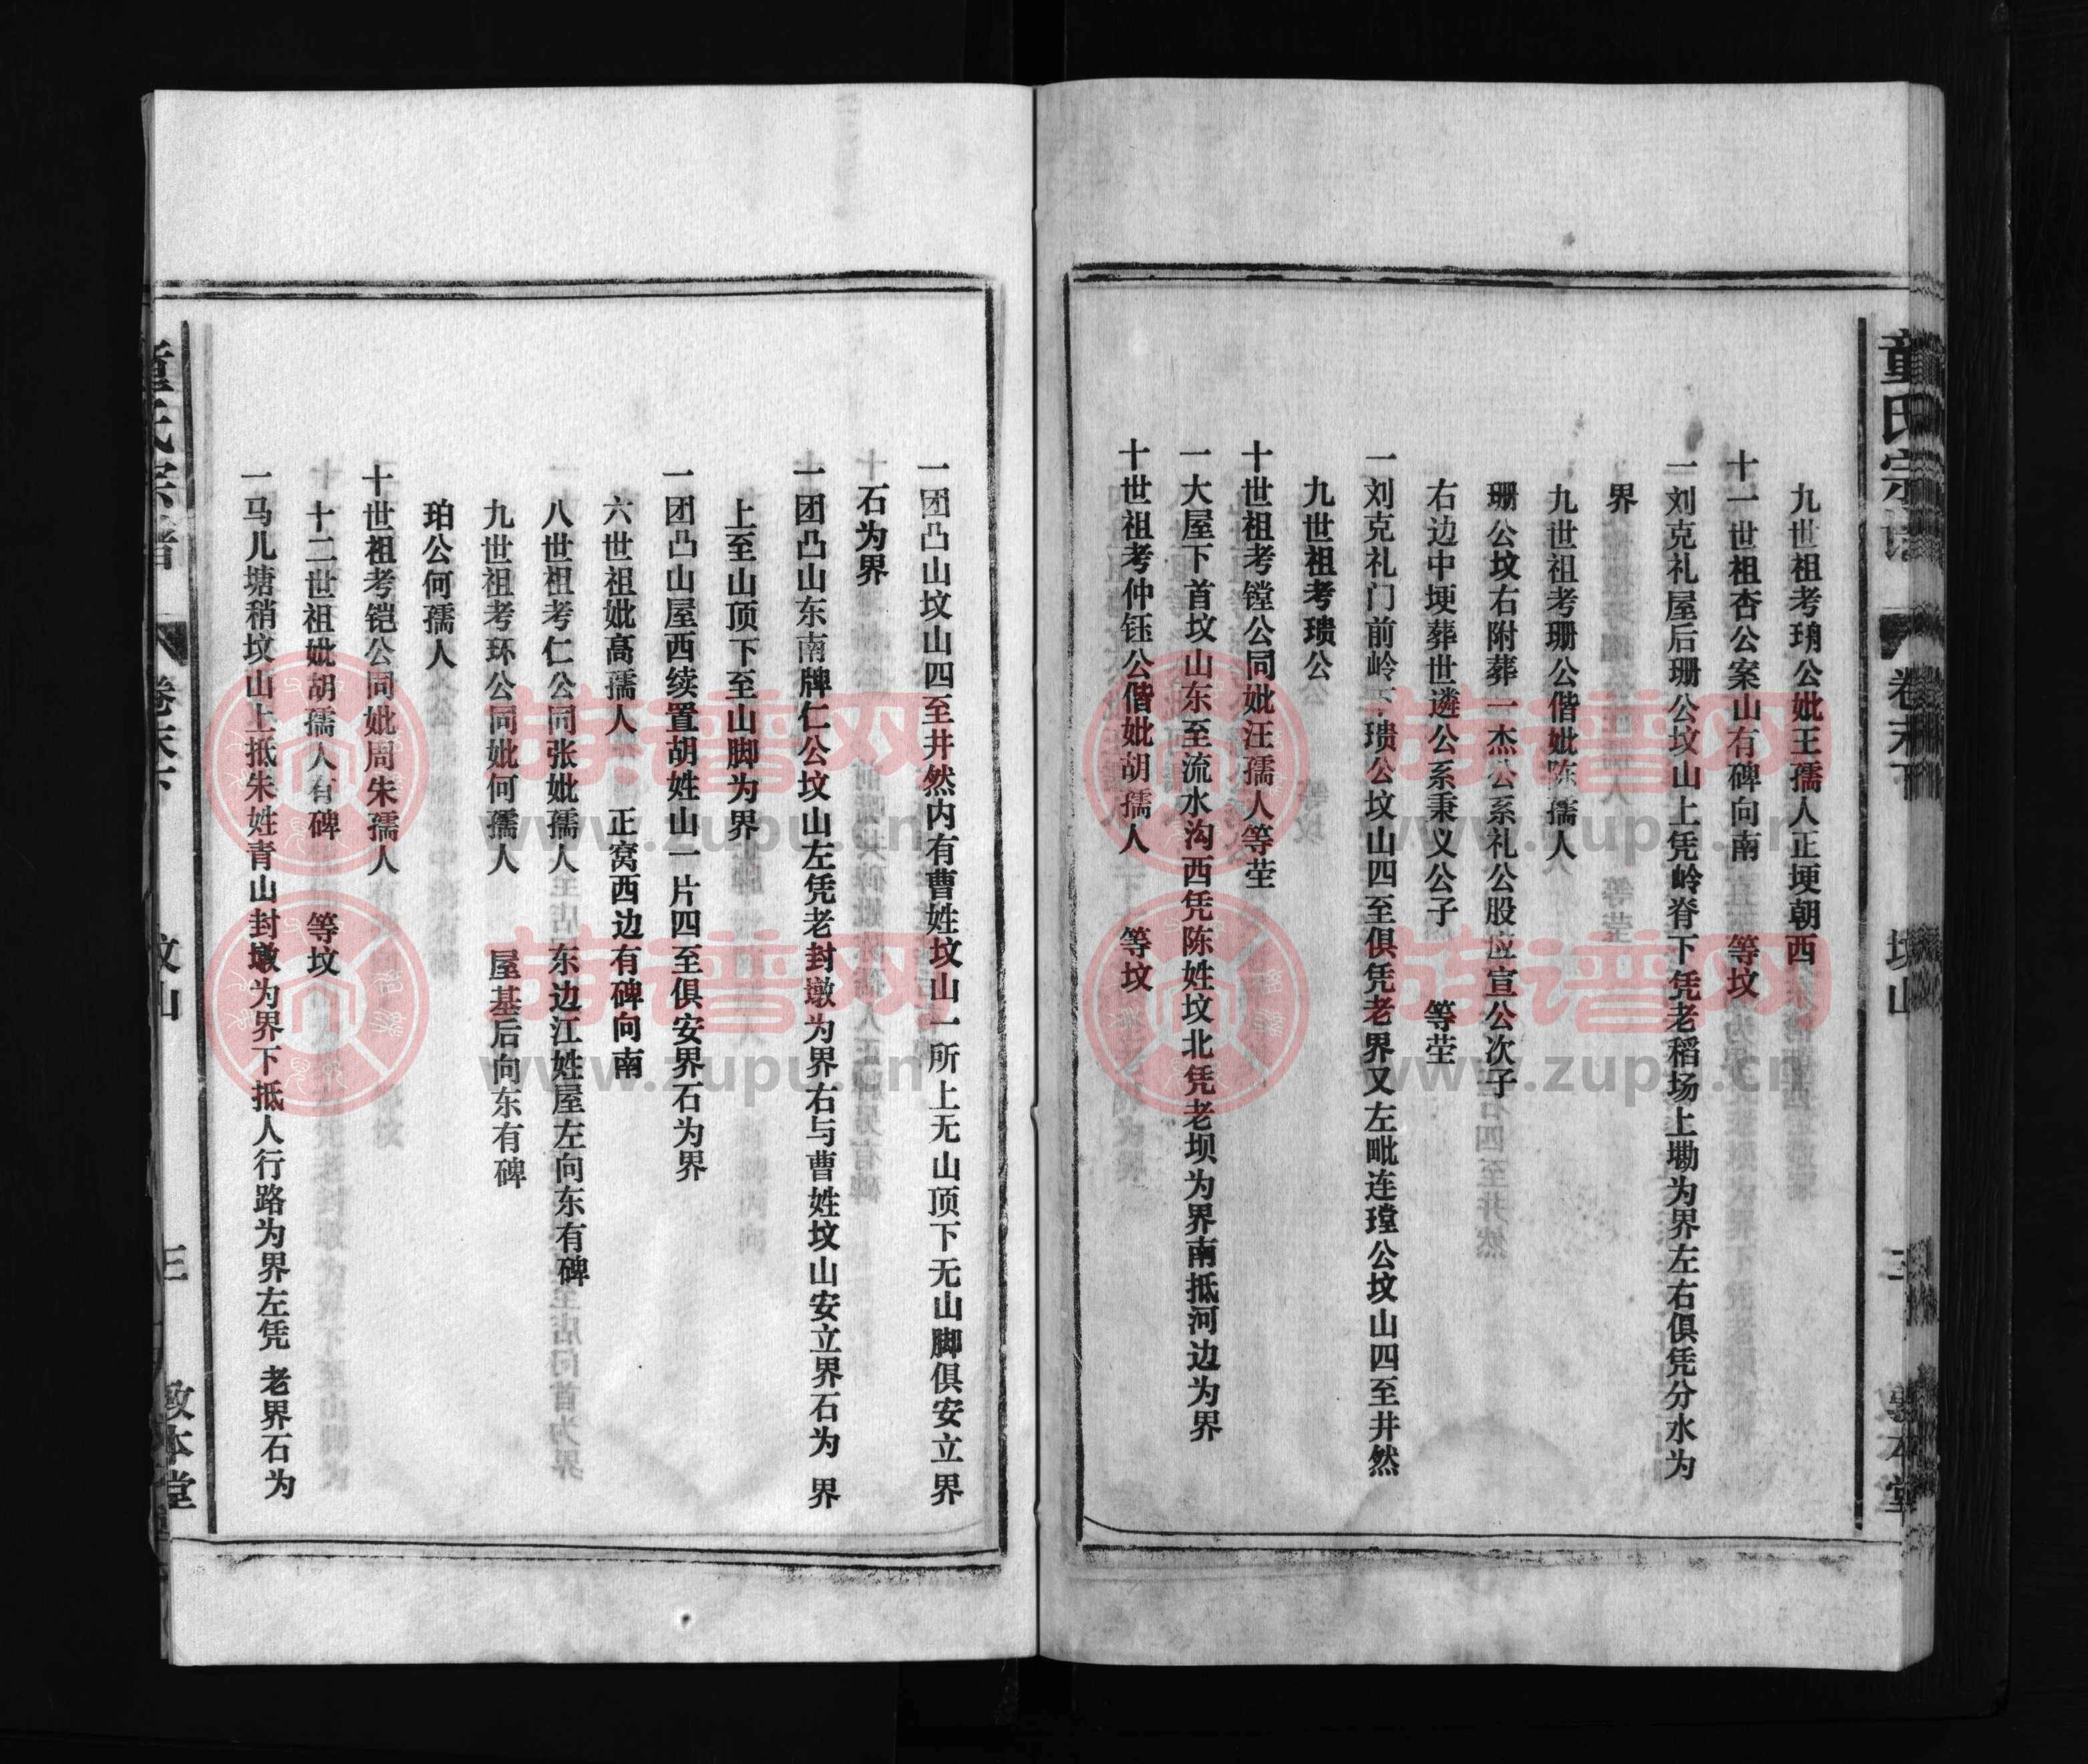 童氏宗谱 卷末下 坟山 三 敦本堂
九世祖考琑公妣王孺人正埂朝西
十一世祖杏公案山有碑向南 等坟
一刘克礼屋后珊公坟山上凭岭脊下凭老稻场上墈为界左右俱凭分水为
界
九世祖考珊公偕妣陈孺人
珊公坟右附葬一杰公系礼公股应宣公次子
右边中埂葬世遴公系秉义公子 等茔
一刘克礼门前岭下瑰公坟山四至俱凭老界又左毗连瑝公坟山四至井然
九世祖考瑰公
十世祖考镗公同妣汪孺人等茔
一大屋下首坟山东至流水沟西凭陈姓坟北凭老坝为界南抵河边为界
十世祖考仲钰公偕妣胡孺人 等坟
一团凸山坟山四至井然内有曹姓坟山一所上无山顶下无山脚俱安立界
石为界
一团凸山东南牌仁公坟山左凭老封墩为界右与曹姓坟山安立界石为界
上至山顶下至山脚为界
一团凸山屋西续置胡姓山一片四至俱安界石为界
六世祖妣高孺人 正窝西边有碑向南
八世祖考仁公同张妣孺人 东边江姓屋左向东有碑
九世祖考环公同妣何孺人 屋基后向东有碑
珀公何孺人
十世祖考铠公同妣周朱孺人
十二世祖妣胡孺人有碑 等坟
一马儿塘稍坟山上抵朱姓青山封墩为界下抵人行路为界左凭老界石为
童氏宗谱 卷末下 坟山 三 敦本堂
族谱网
www.zupu.cn
族谱网
www.zupu.cn
族谱网
www.zupu.cn
族谱网
www.zupu.cn